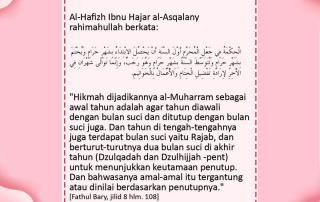 Al-Hafizh Ibnu Hajar al-Asqalany
rahimahullah berkata:
الْحِكْمَةُ فِي جَعْلِ الْمُحَرَّمِ أَوَّلَ السَّنَةِ أَنْ يَحْصُلَ الِابْتِدَاءُ بِشَهْرٍ حَرَامٍ وَيُخْتَمَ
بِشَهْرٍ حَرَامٍ وَتُتَوَسَّطَ السَّنَةُ بِشَهْرٍ حَرَامٍ وَهُوَ رَجَبٌ، وَإِنَّمَا تَوَالَى شَهْرَانِ فِي
الْآخِرِ لِإِرَادَةِ تَفْضِيلِ الْخِتَامِ وَالْأَعْمَالُ بِالْخَوَاتِيمِ.
"Hikmah dijadikannya al-Muharram sebagai
awal tahun adalah agar tahun diawali
dengan bulan suci dan ditutup dengan bulan
suci juga. Dan tahun di tengah-tengahnya
juga terdapat bulan suci yaitu Rajab, dan
berturut-turutnya dua bulan suci di akhir
tahun (Dzulqadah dan Dzulhijjah -pent)
untuk menunjukkan keutamaan penutup.
Dan bahwasanya amal-amal itu tergantung
atau dinilai berdasarkan penutupnya."
[Fathul Bary, jilid 8 hlm. 108]